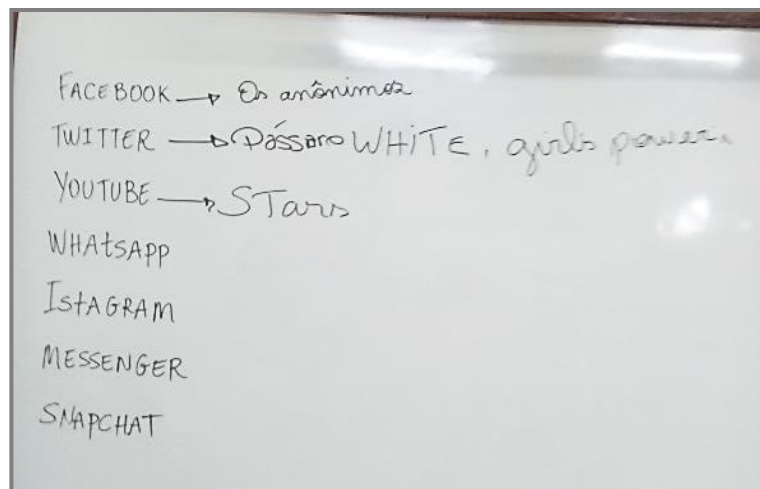 FACEBOOK → Os anônimos
TWITTER → Pássaro WHITE, girls power.
YOUTUBE → STars
WHAtSAPP
IStAGRAM
MESSENGER
SNAPCHAT